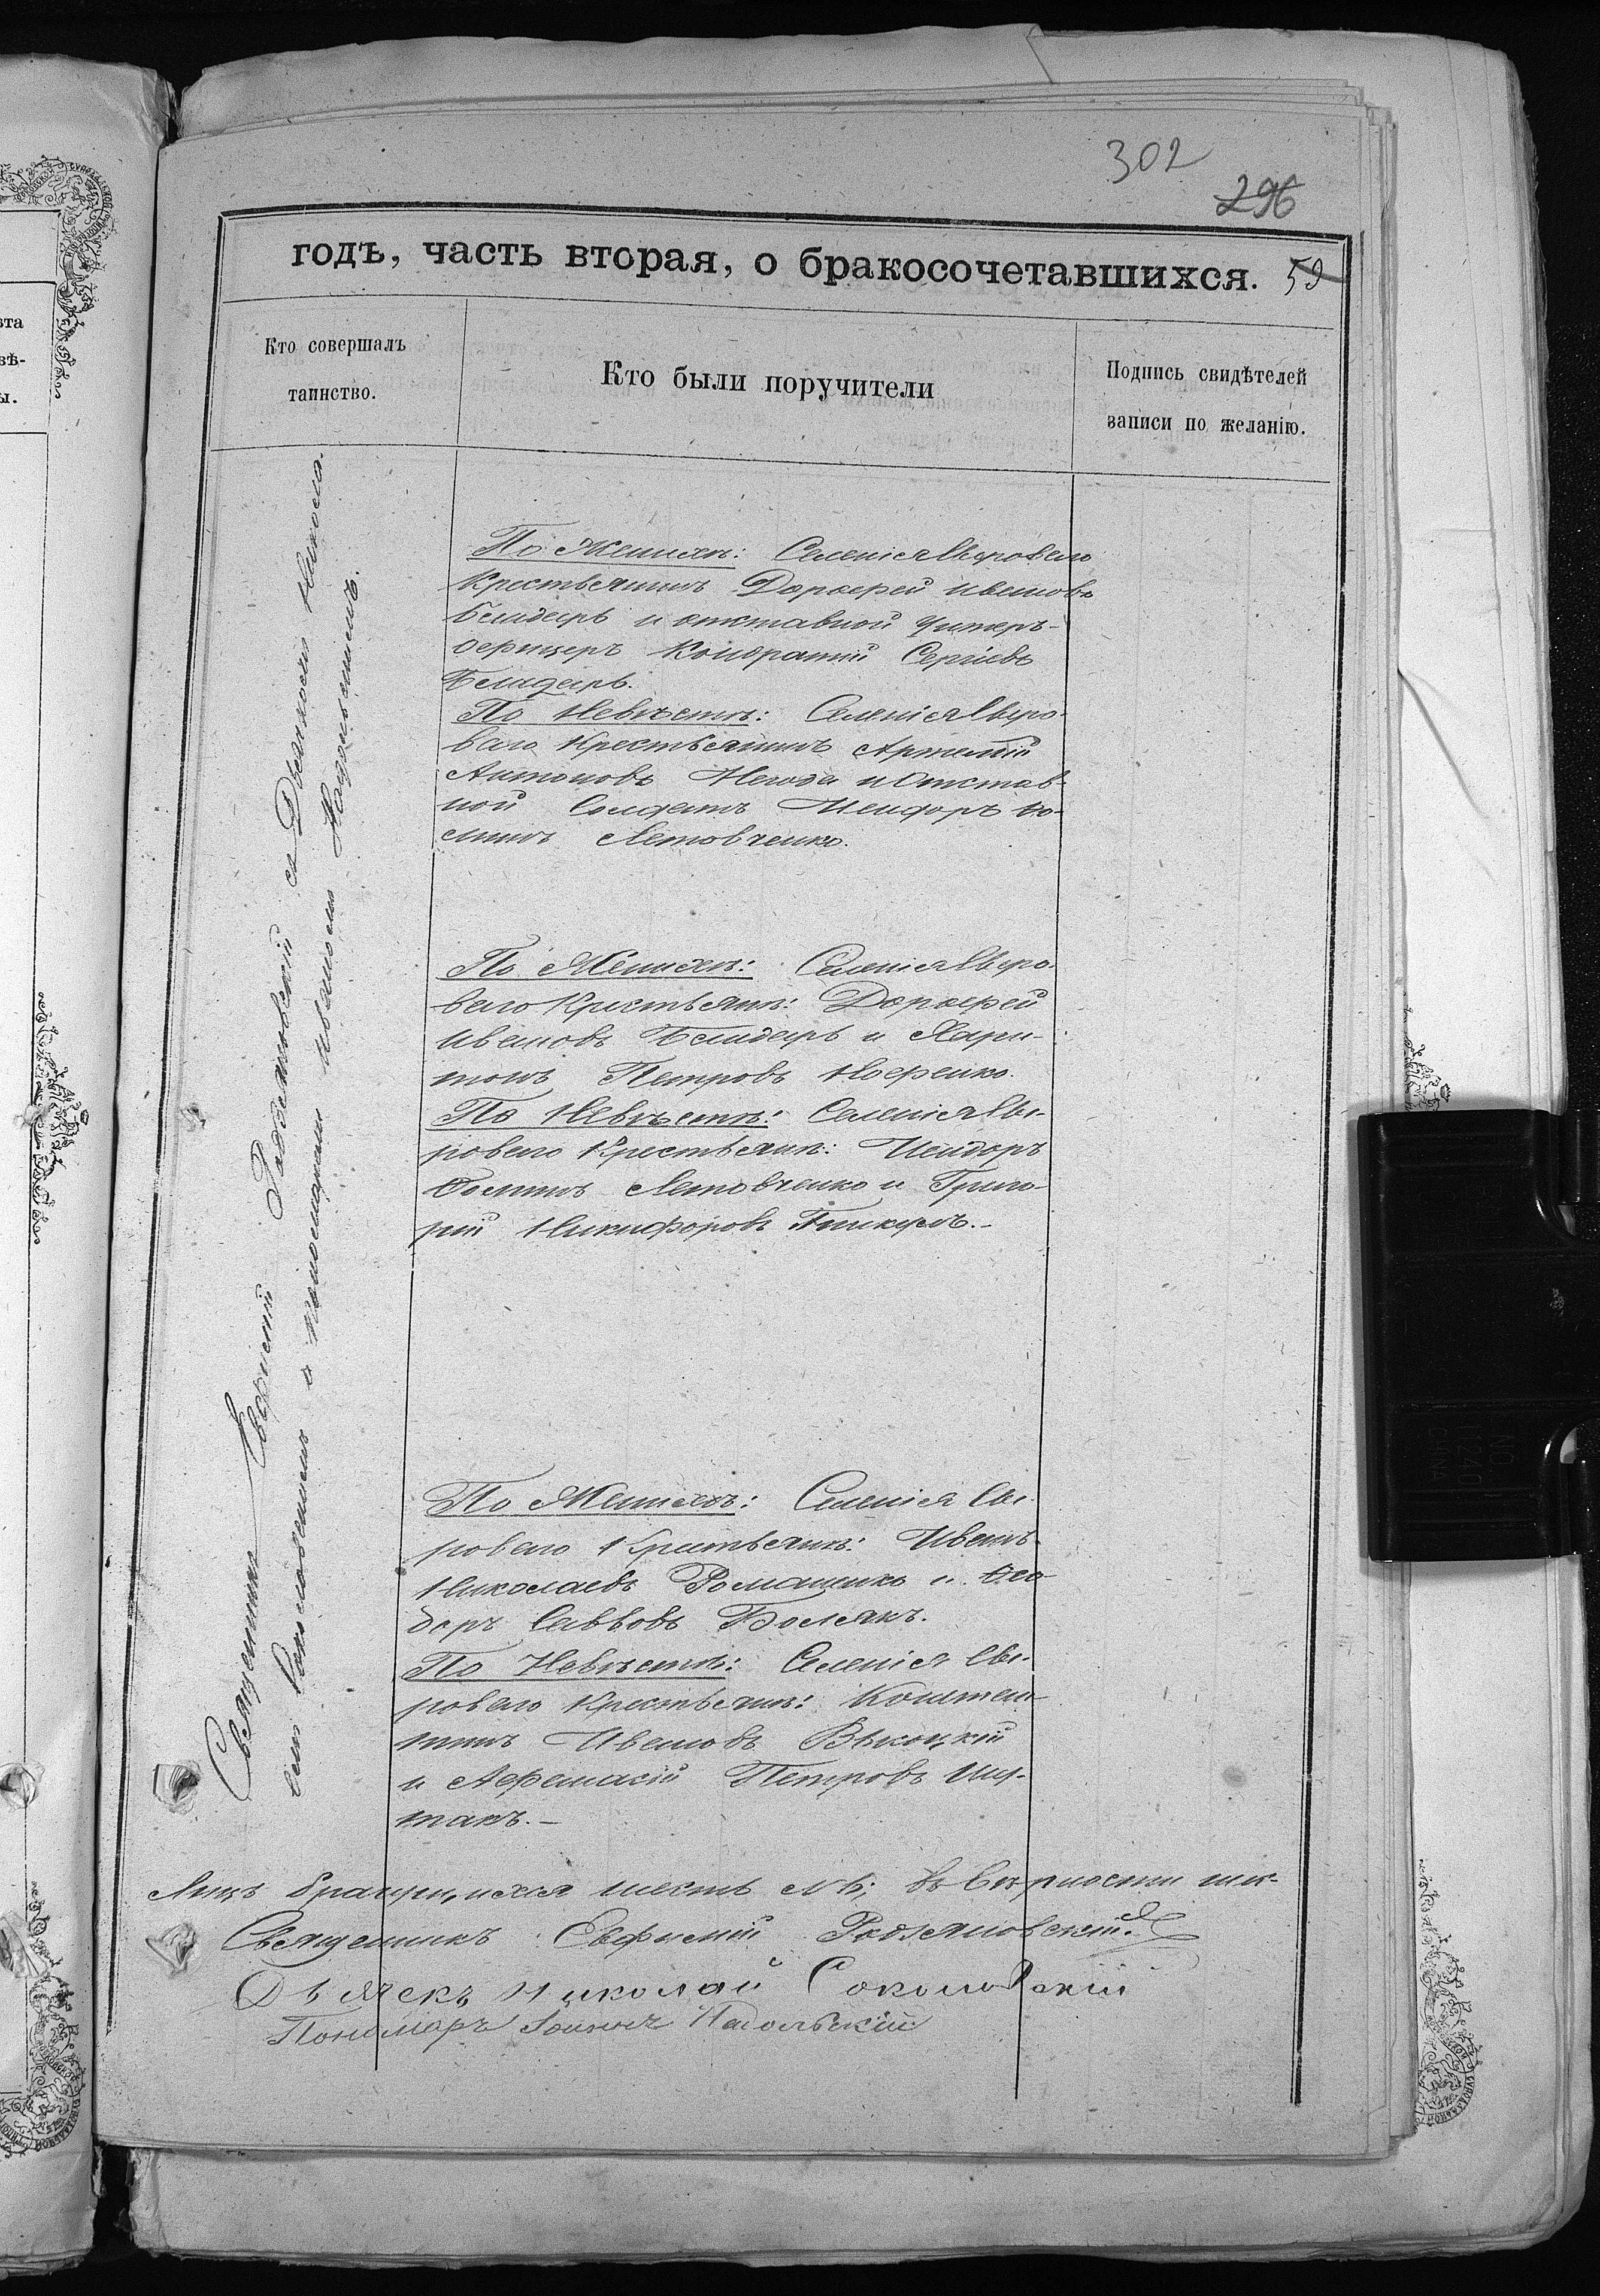 302
296
годъ, часть вторая, о бракосочетавшихся. 59
Кто совершалъ
таинство.
Кто были поручители
Подпись свидѣтелей
записи по желанію.
Священникъ Евфимій Родзяновскій съ Дьячкомъ Никола-
емъ Соколовскимъ и Пономаремъ Иваномъ Надольскимъ.
По Женихѣ: Селенія Сыроваго
Крестьянинъ Дорофей Ивановъ
Бендарь и отставной Унтеръ-
офицеръ Кондратій Сергіевъ
Бендарь.
По Невѣстѣ: Селенія Сыро-
ваго Крестьянинъ Артемій
Антоновъ Негода и Отстав-
ной Солдатъ Исидоръ Ѳо-
минъ Летовченко.
По Женихѣ: Селенія Сыро-
ваго Крестьян: Дорофей
Ивановъ Бендарь и Хари-
тонъ Петровъ
По Невѣстѣ: Селенія Сы-
роваго Крестьян: Исидоръ
Ѳоминъ Летовченко и Григо-
рій Никифоровъ Пикулъ.-
По Женихѣ: Селенія Сы-
роваго Крестьян: Иванъ
Николаевъ Романенко и Ѳео-
доръ Саввовъ Болякъ.
По Невѣстѣ: Селенія Сы-
роваго Крестьян: Констан-
тинъ Ивановъ Высоцкій
и Афанасій Петровъ
такъ.-
шесть
Священникъ Евфимій Родзяновскій
Дьячекъ Николай Соколовскій
Пономарь Іоаннъ Надольскій